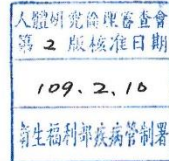 人體研究倫理審查會
第 2 版核准日期
109.2.10
衛生福利部疾病管制署